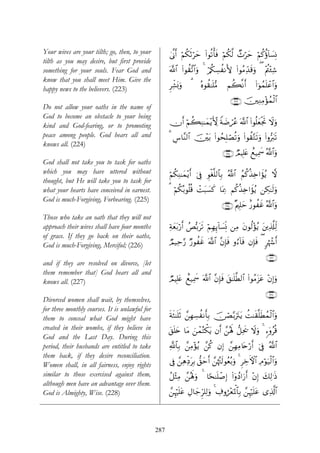 Your wives are your tilth; go, then, to your
tilth as you may desire, but first provide
something for your souls. Fear God and
know that you shall meet Him. Give the
happy news to the believers. (223)
Do not allow your oaths in the name of
God to become an obstacle to your being
kind and God-fearing, or to promoting
peace among people. God hears all and
knows all. (224)
God shall not take you to task for oaths
which you may have uttered without
thought, but He will take you to task for
what your hearts have conceived in earnest.
God is much-Forgiving, Forbearing. (225)
Those who take an oath that they will not
approach their wives shall have four months
of grace. If they go back on their oaths,
God is much-Forgiving, Merciful; (226)
and if they are resolved on divorce, [let
them remember that] God hears all and
knows all. (227)
Divorced women shall wait, by themselves,
for three monthly courses. It is unlawful for
them to conceal what God might have
created in their wombs, if they believe in
God and the Last Day. During this
period, their husbands are entitled to take
them back, if they desire reconciliation.
Women shall, in all fairness, enjoy rights
similar to those exercised against them,
although men have an advantage over them.
God is Almighty, Wise. (228)
نِسَآؤُكُمْ حَرْثٌ لَّكُمْ فَأْتُوا۟ حَرْثَكُمْ أَنَّىٰ
شِئْتُمْ ۖ وَقَدِّمُوا۟ لِأَنفُسِكُمْ ۚ وَٱتَّقُوا۟ ٱللَّهَ
وَٱعْلَمُوٓا۟ أَنَّكُم مُّلَـٰقُوهُ ۗ وَبَشِّرِ
ٱلْمُؤْمِنِينَ ﴿٢٢٣﴾
وَلَا تَجْعَلُوا۟ ٱللَّهَ عُرْضَةً لِّأَيْمَـٰنِكُمْ أَن
تَبَرُّوا۟ وَتَتَّقُوا۟ وَتُصْلِحُوا۟ بَيْنَ ٱلنَّاسِ ۗ
وَٱللَّهُ سَمِيعٌ عَلِيمٌ ﴿٢٢٤﴾
لَّا يُؤَاخِذُكُمُ ٱللَّهُ بِٱللَّغْوِ فِىٓ أَيْمَـٰنِكُمْ
وَلَـٰكِن يُؤَاخِذُكُم بِمَا كَسَبَتْ قُلُوبُكُمْ ۗ
وَٱللَّهُ غَفُورٌ حَلِيمٌ ﴿٢٢٥﴾
لِّلَّذِينَ يُؤْلُونَ مِن نِّسَآئِهِمْ تَرَبُّصُ أَرْبَعَةِ
أَشْهُرٍ ۖ فَإِن فَآءُو فَإِنَّ ٱللَّهَ غَفُورٌ رَّحِيمٌ
﴿٢٢٦﴾
وَإِنْ عَزَمُوا۟ ٱلطَّلَـٰقَ فَإِنَّ ٱللَّهَ سَمِيعٌ عَلِيمٌ
﴿٢٢٧﴾
وَٱلْمُطَلَّقَـٰتُ يَتَرَبَّصْنَ بِأَنفُسِهِنَّ ثَلَـٰثَةَ
قُرُوٓءٍ ۚ وَلَا يَحِلُّ لَهُنَّ أَن يَكْتُمْنَ مَا خَلَقَ
ٱللَّهُ فِىٓ أَرْحَامِهِنَّ إِن كُنَّ يُؤْمِنَّ بِٱللَّهِ
وَٱلْيَوْمِ ٱلْـَٔاخِرِ ۚ وَبُعُولَتُهُنَّ أَحَقُّ بِرَدِّهِنَّ فِى
ذَٰلِكَ إِنْ أَرَادُوٓا۟ إِصْلَـٰحًا ۚ وَلَهُنَّ مِثْلُ
ٱلَّذِى عَلَيْهِنَّ بِٱلْمَعْرُوفِ ۚ وَلِلرِّجَالِ عَلَيْهِنَّ
287